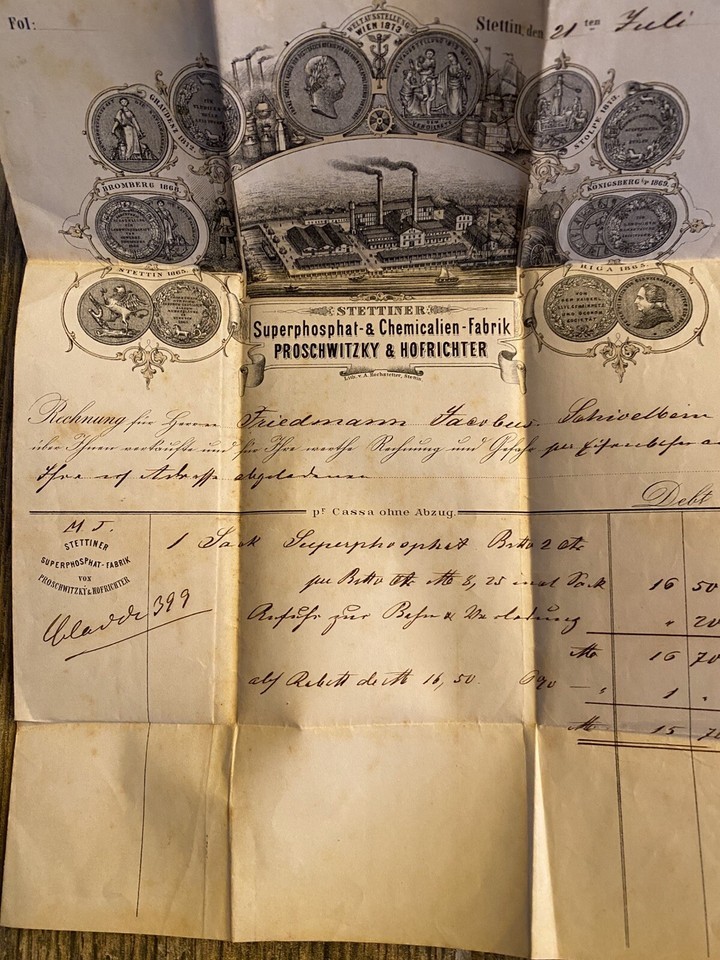 Fol:
Stettin, den 21 ten Juli
WELTAUSSTELLUNG
WIEN 1873
GRAUDENZ 1872.
STOLPE 1873.
BROMBERG 1868.
KÖNIGSBERG i/p 1869.
STETTIN 1865.
RIGA 1865.
STETTINER
Superphosphat-& Chemicalien-Fabrik
PROSCHWITZKY & HOFRICHTER
Lith. v. A. Hochstetter, Stettin.
Rechnung für Herrn Friedmann Jacobus. Schivelbein
über Ihnen verkaufte und für Ihre werthe Rechnung und Gefahr per Eisenbahn an
Ihre Adresse abgeladenen
Debt
pr Cassa ohne Abzug.
M J.
STETTINER
SUPERPHOSPHAT-FABRIK
VON
PROSCHWITZKY & HOFRICHTER
399
1 Sack Superphosphat Btto 2 Ctr
per Btto Ctr M 8,25 incl Sack 16 50
Anfuhr zur Bahn & Verladung " 20
M 16 70
ab Rabatt de M 16,50. 6% — " 1 "
M 15 70